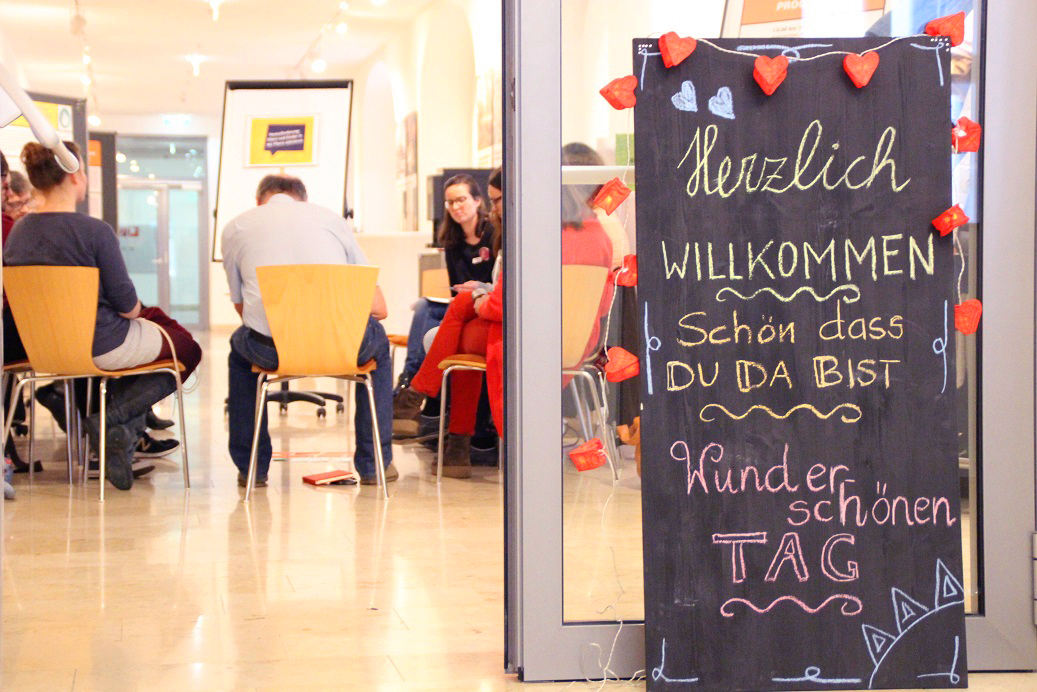 Herzlich
WILLKOMMEN
Schön dass
DU DA BIST
Wunder-
schönen
TAG